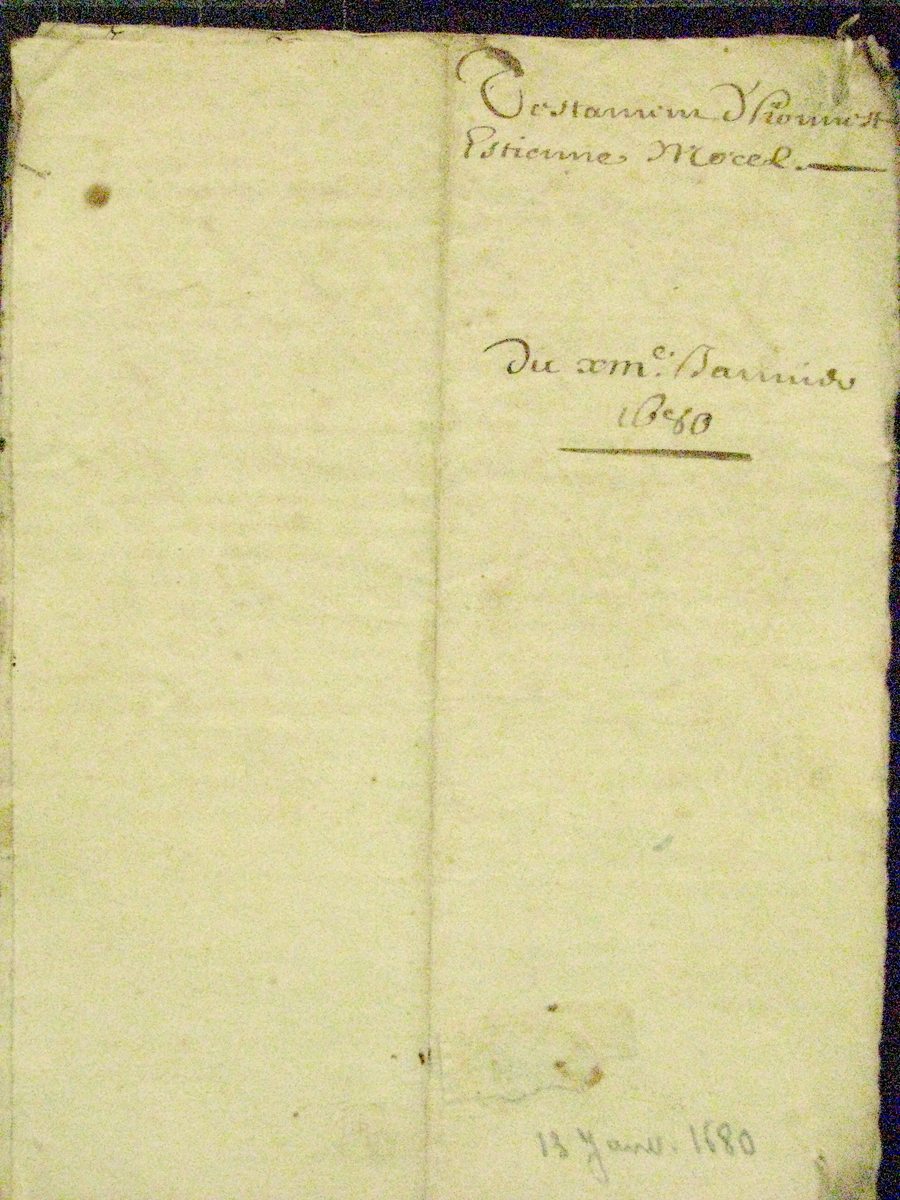 Testament d'honnest
Estienne Morel.
Du xiiie. Janvier
1680
13 Janv. 1680